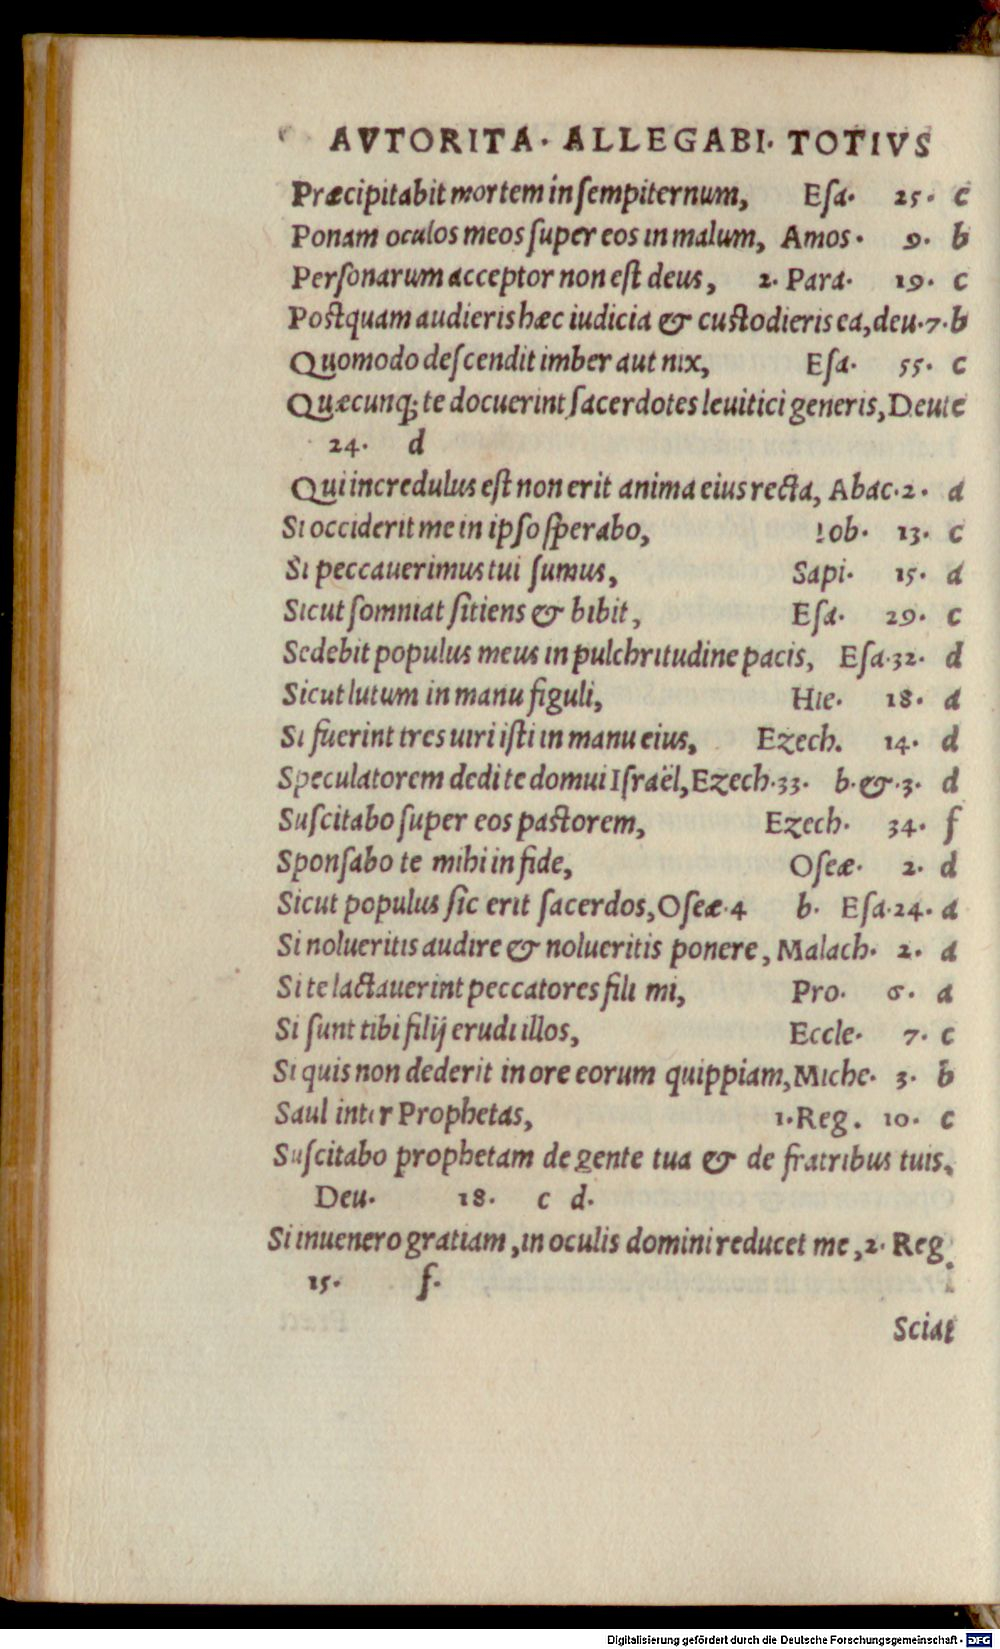 AVTORITA· ALLEGABI· TOTIVS
Præcipitabit mortem in ſempiternum, Eſa· 25· c
Ponam oculos meos ſuper eos in malum, Amos· 9· b
Perſonarum acceptor non eſt deus, 2· Para· 19· c
Poſtquam audieris hæc iudicia & cuſtodieris ea, deu·7·b
Quomodo deſcendit imber aut nix, Eſa· 55· c
Quæcunq; te docuerint ſacerdotes leuitici generis, Deute
24· d
Qui incredulus eſt non erit anima eius recta, Abac·2· a
Si occiderit me in ipſo ſperabo, Iob· 13· c
Si peccauerimus tui ſumus, Sapi· 15· a
Sicut ſomniat ſitiens & bibit, Eſa· 29· c
Sedebit populus meus in pulchritudine pacis, Eſa·32· d
Sicut lutum in manu figuli, Hie· 18· a
Si fuerint tres uiri iſti in manu eius, Ezech. 14· d
Speculatorem dedi te domui Iſraël, Ezech·33· b·&·3· d
Suſcitabo ſuper eos paſtorem, Ezech· 34· f
Sponſabo te mihi in fide, Oſeæ· 2· d
Sicut populus ſic erit ſacerdos, Oſeæ·4 b· Eſa·24· a
Si nolueritis audire & nolueritis ponere, Malach· 2· a
Si te lactauerint peccatores fili mi, Pro· 6· a
Si ſunt tibi filij erudi illos, Eccle· 7· c
Si quis non dederit in ore eorum quippiam, Miche· 3· b
Saul inter Prophetas, 1·Reg. 10· c
Suſcitabo prophetam de gente tua & de fratribus tuis,
Deu· 18· c d·
Si inuenero gratiam, in oculis domini reducet me, 2· Reg.
15· f·
Sciat
Digitalisierung gefördert durch die Deutsche Forschungsgemeinschaft - DFG